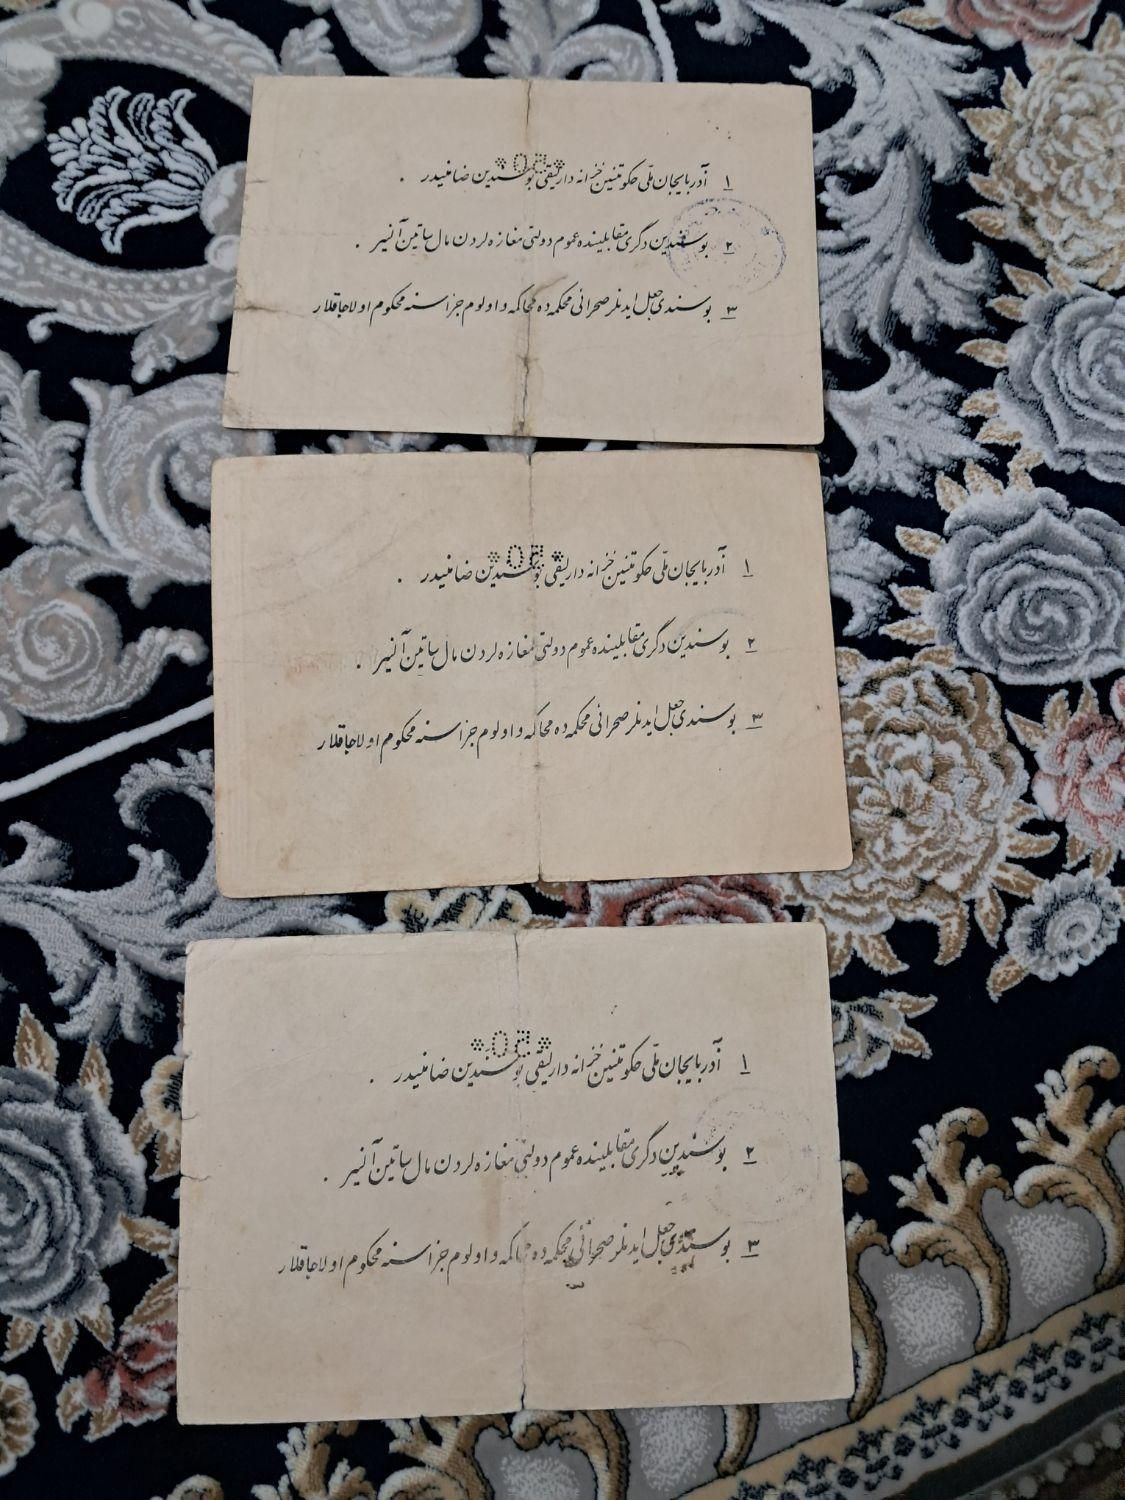 *50*
۱ آذربایجان ملّی حکومتنین خزانه داریلقی بوسندین ضامنیدر .
۲ بوسندین دگری مقابلینده عموم دولتی مغازه لردن مال ساتین آلنیر .
۳ بوسندی جعل ایدنلر صحرائی محکمه ده محاکمه و اولوم جزاسنه محکوم اولاجاقلار
*50*
۱ آذربایجان ملّی حکومتنین خزانه داریلقی بوسندین ضامنیدر .
۲ بوسندین دگری مقابلینده عموم دولتی مغازه لردن مال ساتین آلنیر .
۳ بوسندی جعل ایدنلر صحرائی محکمه ده محاکمه و اولوم جزاسنه محکوم اولاجاقلار
*50*
۱ آذربایجان ملّی حکومتنین خزانه داریلقی بوسندین ضامنیدر .
۲ بوسندین دگری مقابلینده عموم دولتی مغازه لردن مال ساتین آلنیر .
۳ بوسندی جعل ایدنلر صحرائی محکمه ده محاکمه و اولوم جزاسنه محکوم اولاجاقلار